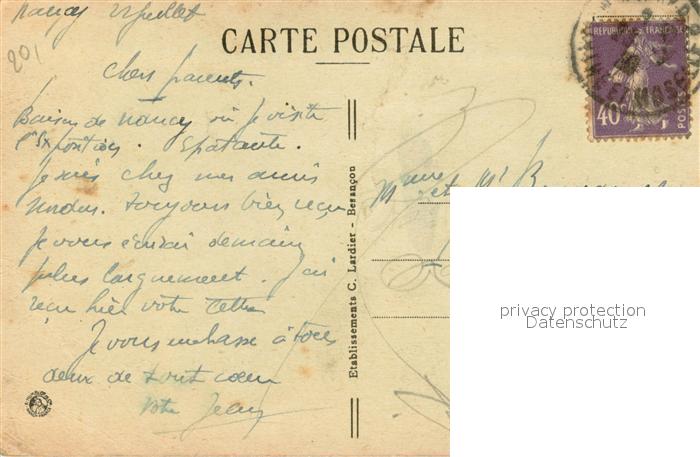 Nancy juillet
201
CARTE POSTALE
REPUBLIQUE FRANÇAISE
40c
POSTES
Chers parents.
Baisers de Nancy où je visite
l'Exposition. Epatante.
Je suis chez mes amis
toujours bien reçu
Je vous écrirai demain
plus longuement. J'ai
reçu hier votre lettre
Je vous embrasse à tous
deux de tout cœur
Votre Jean
Etablissements C. Lardier - Besançon
Mme et Mr
privacy protection
Datenschutz